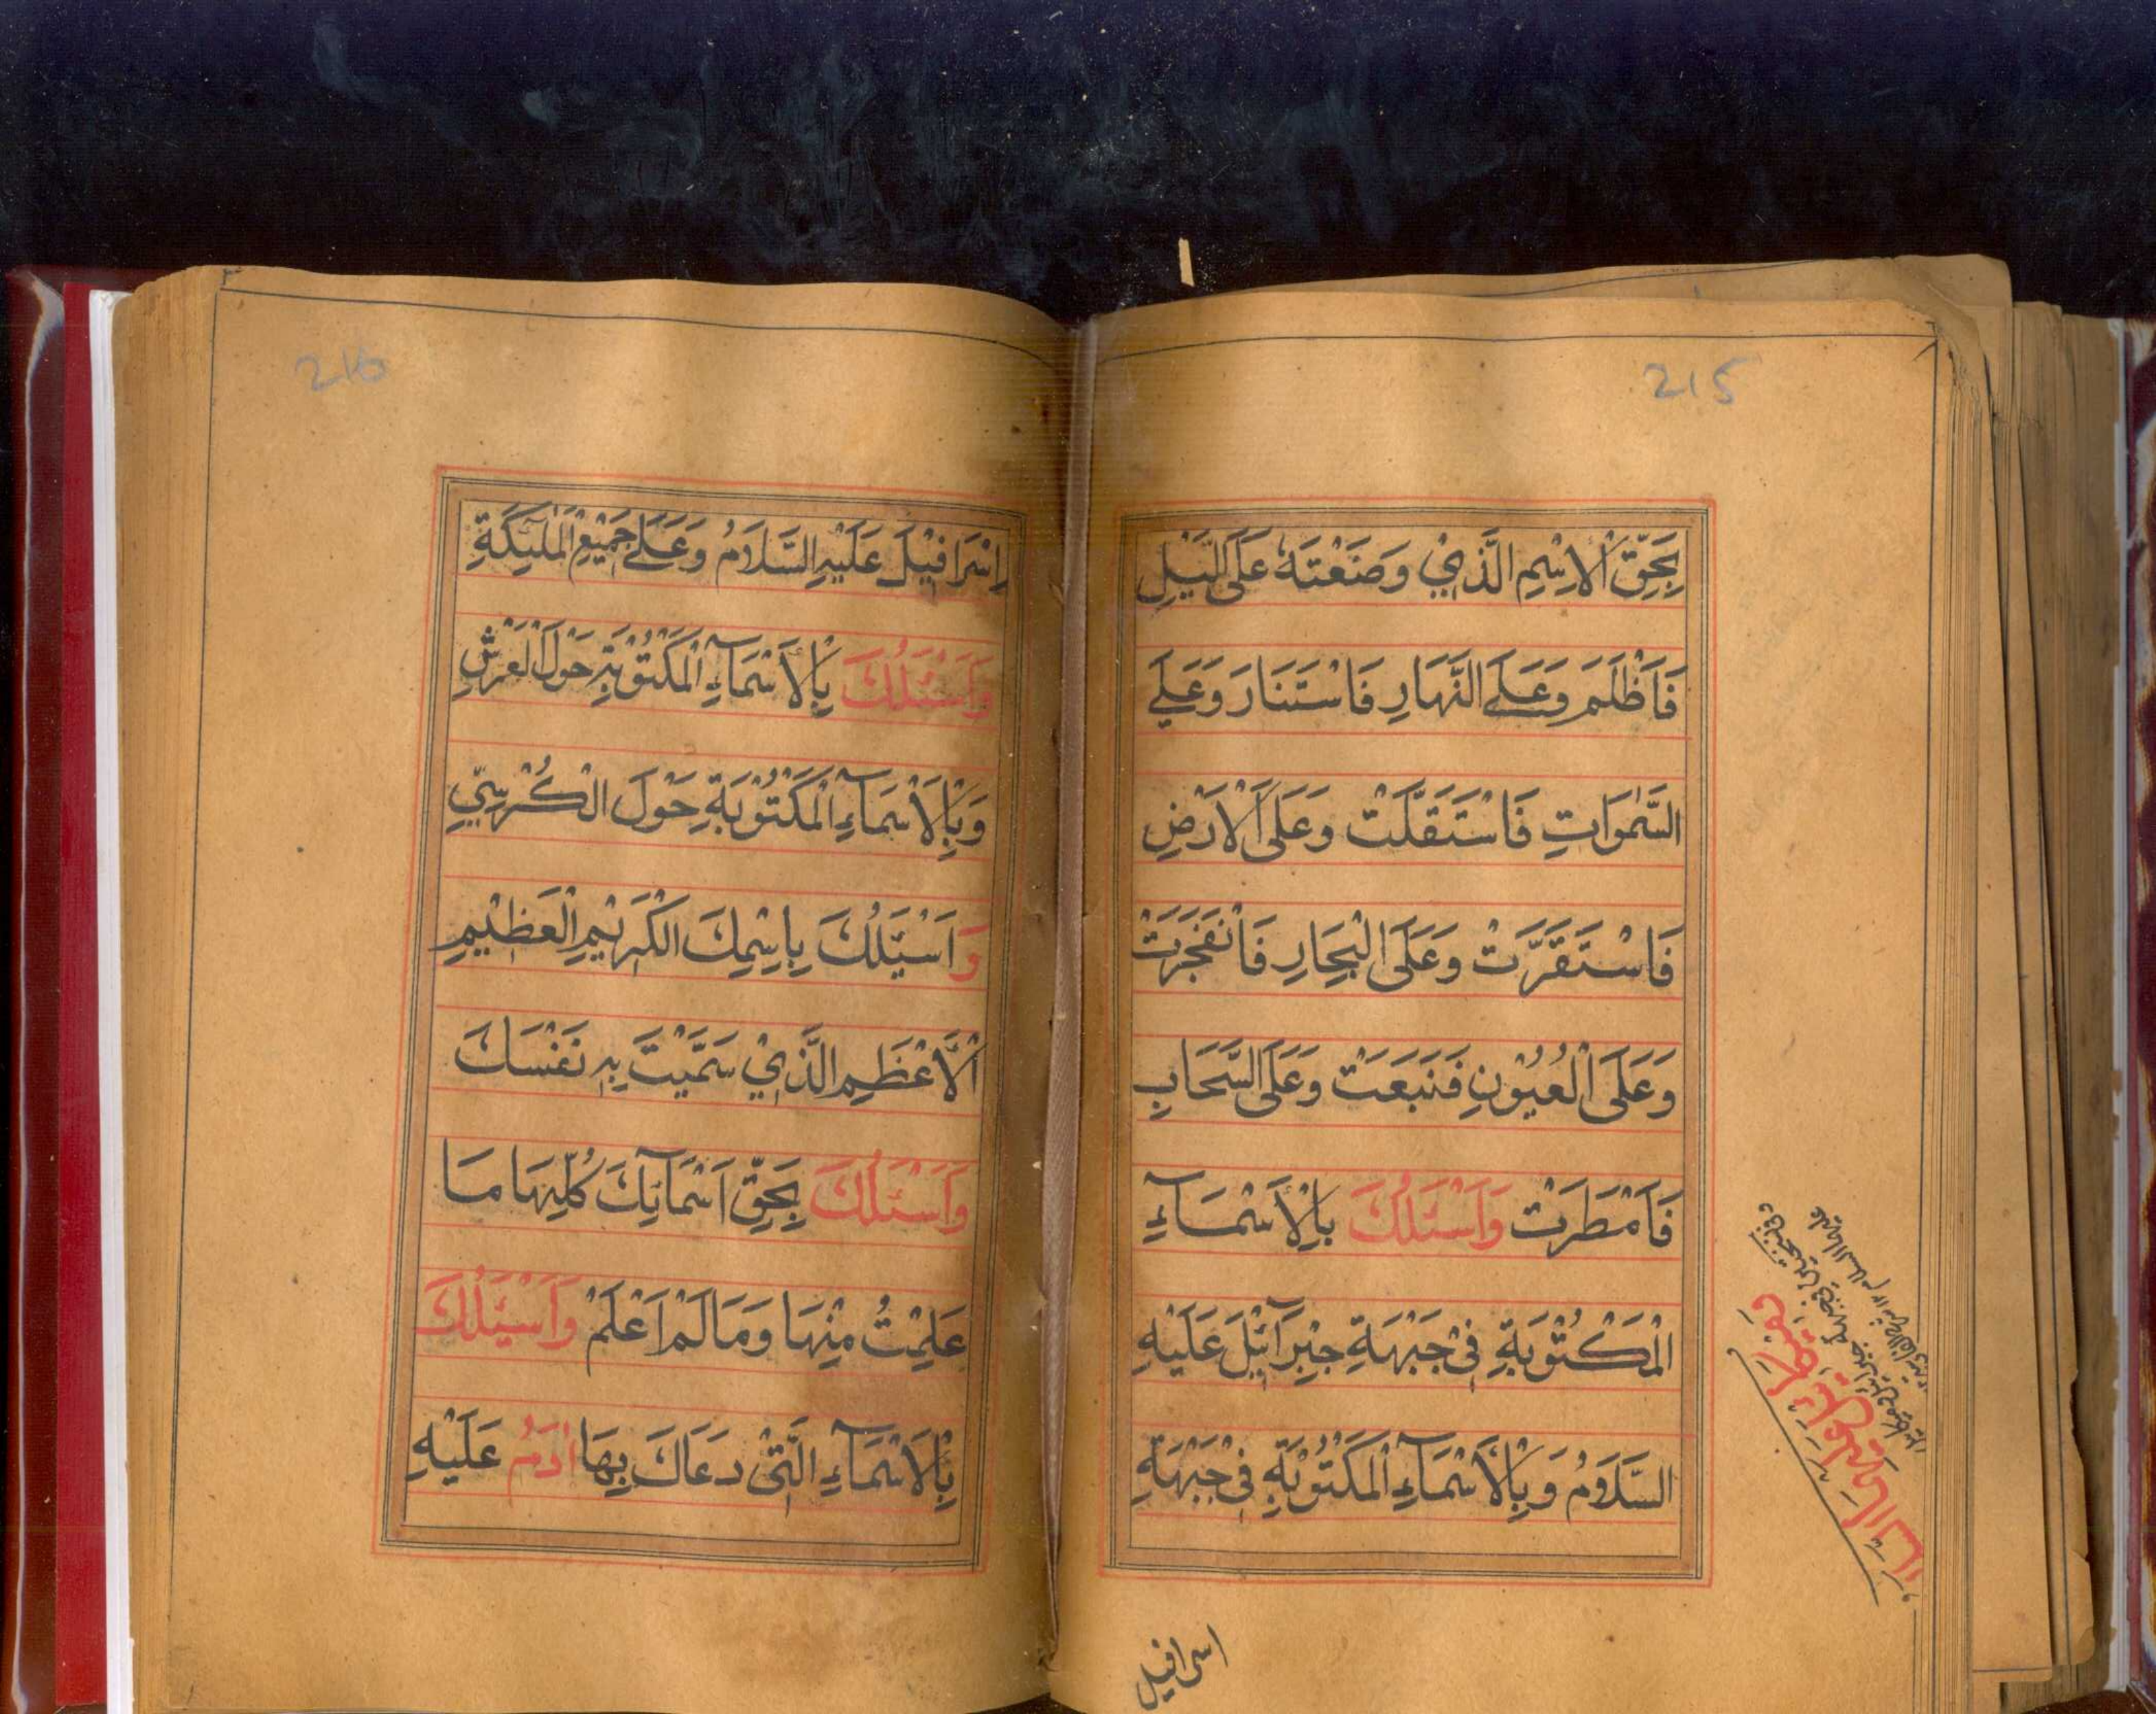 215
بِحَقِّ الْاِسْمِ الَّذِيْ وَضَعْتَهٗ عَلَى الَّيْلِ
فَاَظْلَمَ وَعَلَے النَّهَارِ فَاسْتَنَارَ وَعَلَے
السَّمٰوَاتِ فَاسْتَقَلَّتْ وَعَلَى الْاَرْضِ
فَاسْتَقَرَّتْ وَعَلَى الْبِحَارِ فَانْفَجَرَتْ
وَعَلَى الْعُيُوْنِ فَنَبَعَتْ وَعَلَى السَّحَابِ
فَاَمْطَرَتْ وَاَسْئَلُكَ بِالْاَسْمَآءِ
الْمَكْتُوْبَةِ فِيْ جَبْهَةِ جِبْرَآئِيْلَ عَلَيْهِ
السَّلَامُ وَبِالْاَسْمَآءِ الْمَكْتُوْبَةِ فِيْ جَبْهَةِ
اسرافيل
216
اِسْرَافِيْلَ عَلَيْهِ السَّلَامُ وَعَلَے جَمِيْعِ الْمَلٰٓئِكَةِ
وَاَسْئَلُكَ بِالْاَسْمَآءِ الْمَكْتُوْبَةِ حَوْلَ الْعَرْشِ
وَبِالْاَسْمَآءِ الْمَكْتُوْبَةِ حَوْلَ الْكُرْسِيِّ
وَاَسْئَلُكَ بِاسْمِكَ الْكَرِيْمِ الْعَظِيْمِ
الْاَعْظَمِ الَّذِيْ سَمَّيْتَ بِهٖ نَفْسَكَ
وَاَسْئَلُكَ بِحَقِّ اَسْمَآئِكَ كُلِّهَا مَا
عَلِمْتُ مِنْهَا وَمَا لَمْ اَعْلَمْ وَاَسْئَلُكَ
بِالْاَسْمَآءِ الَّتِيْ دَعَاكَ بِهَا اٰدَمُ عَلَيْهِ